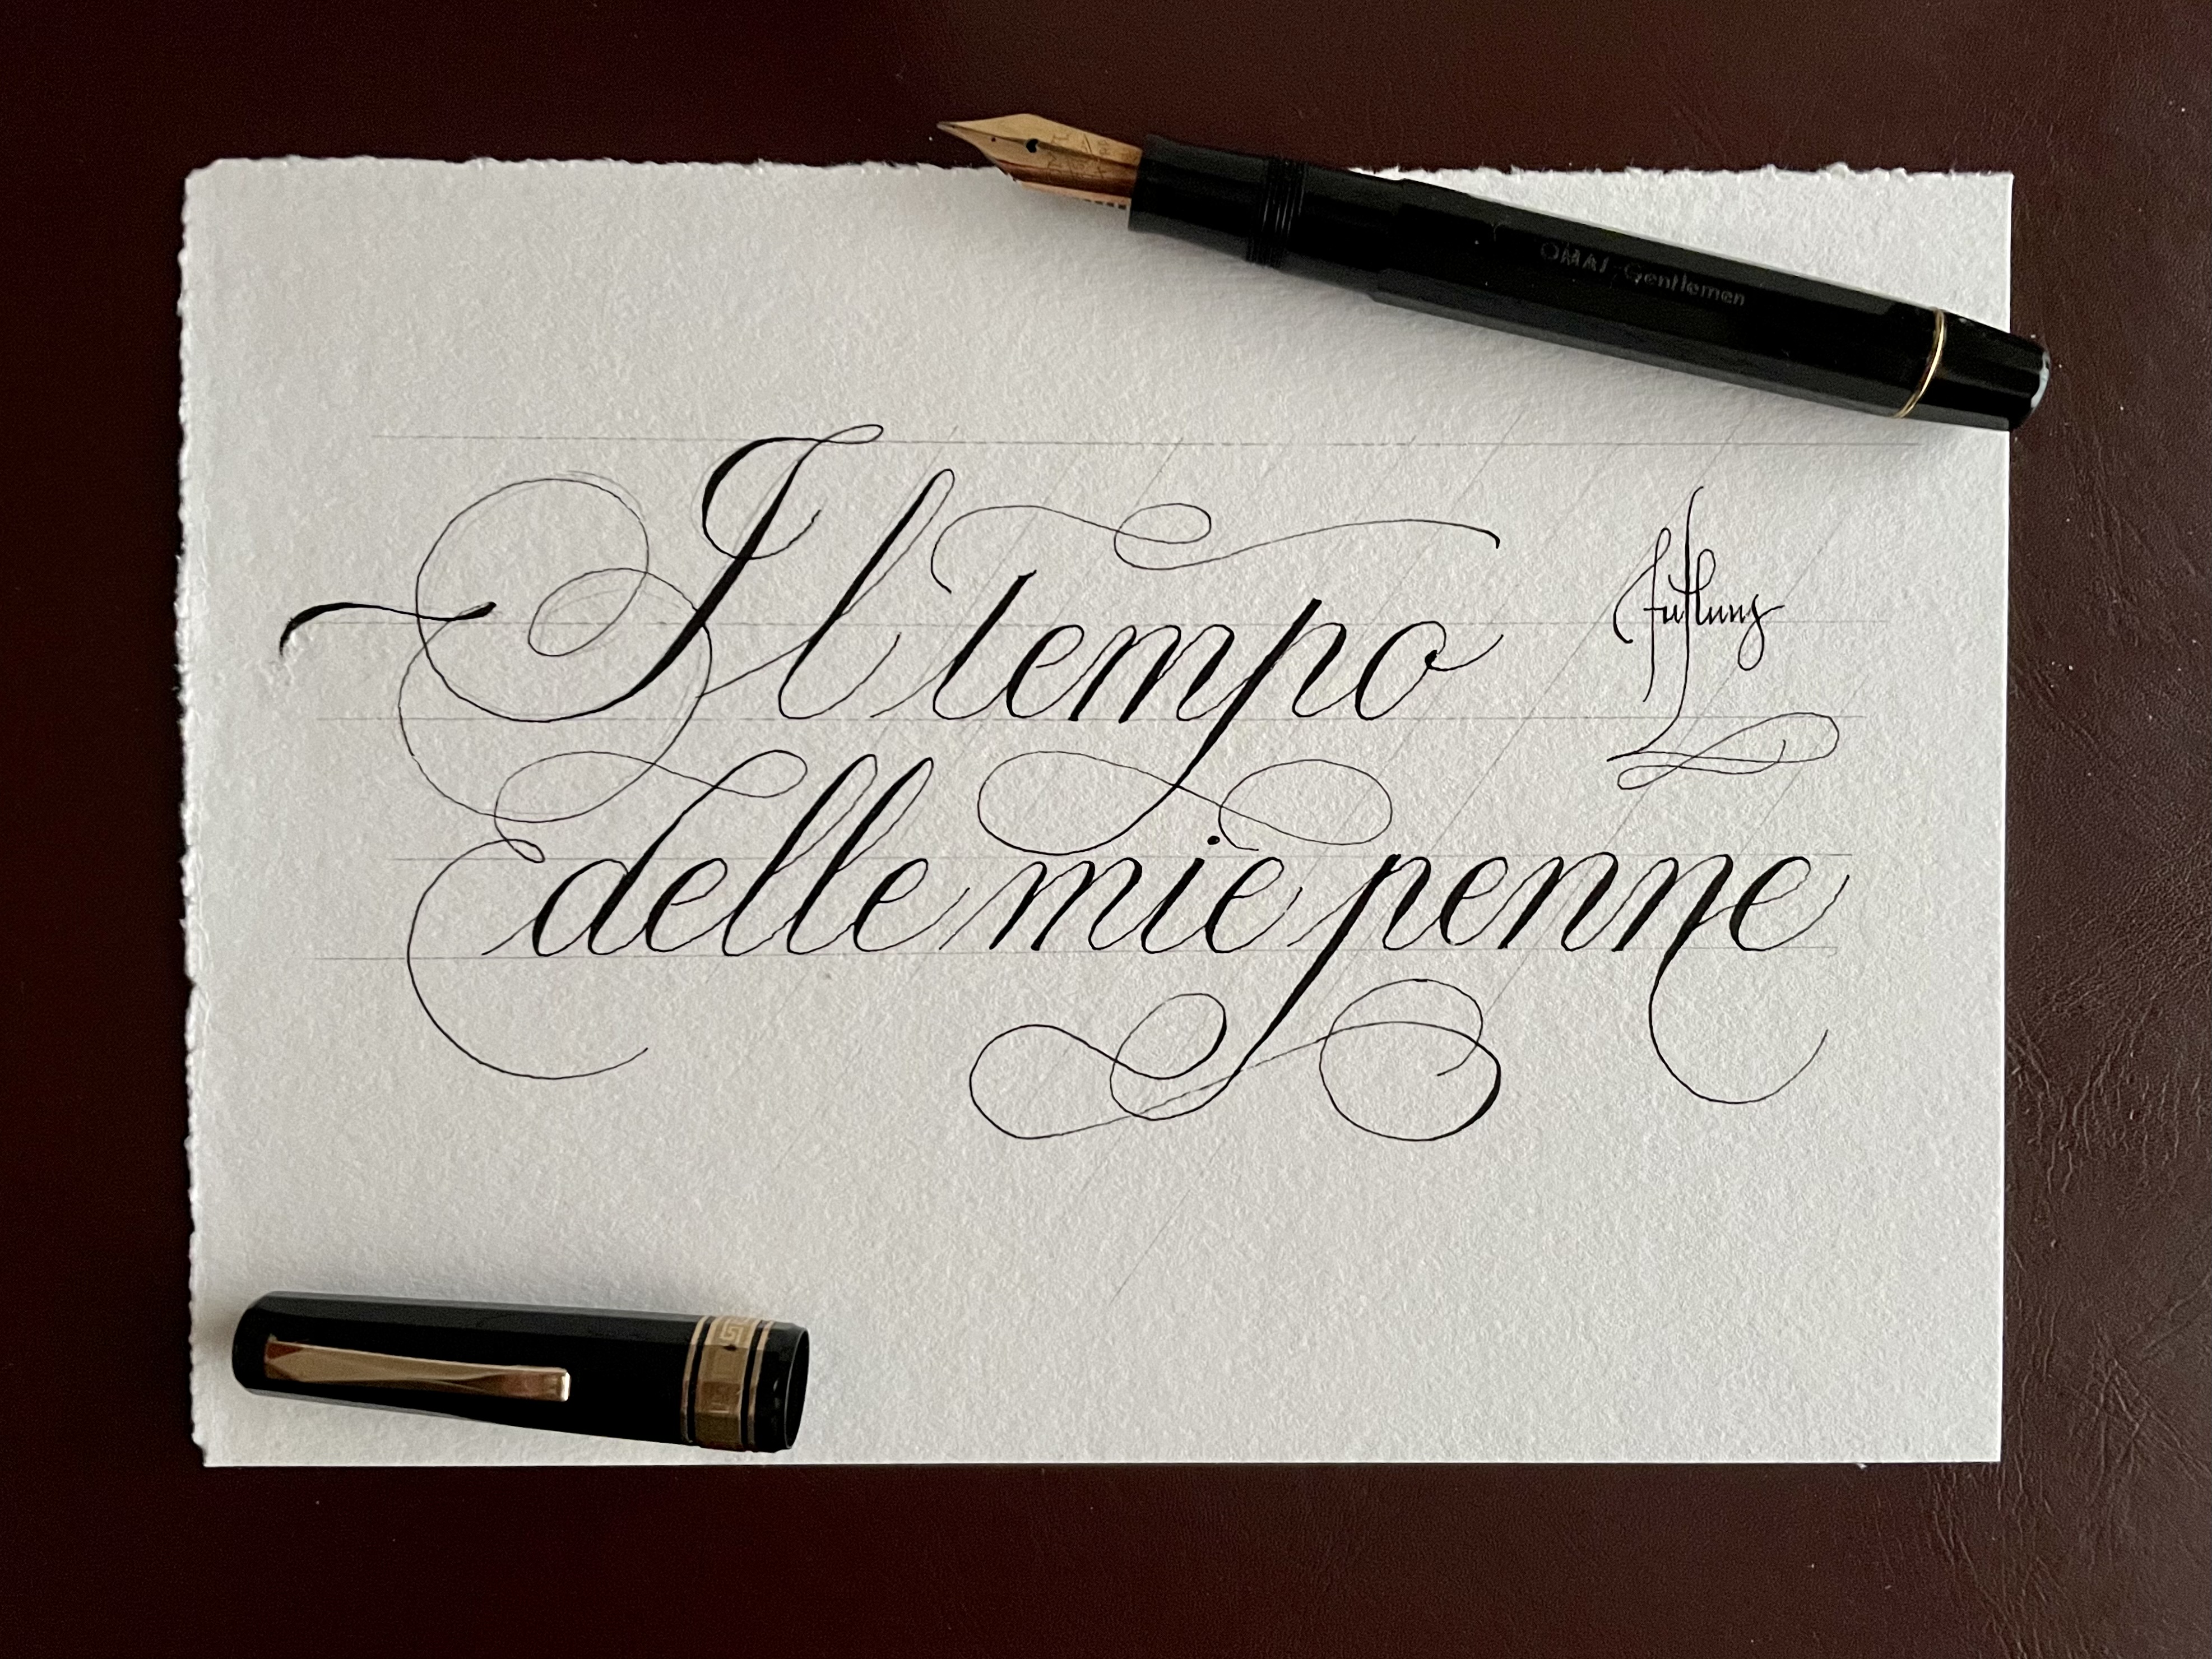 OMAS Gentlemen
Il tempo
delle mie penne